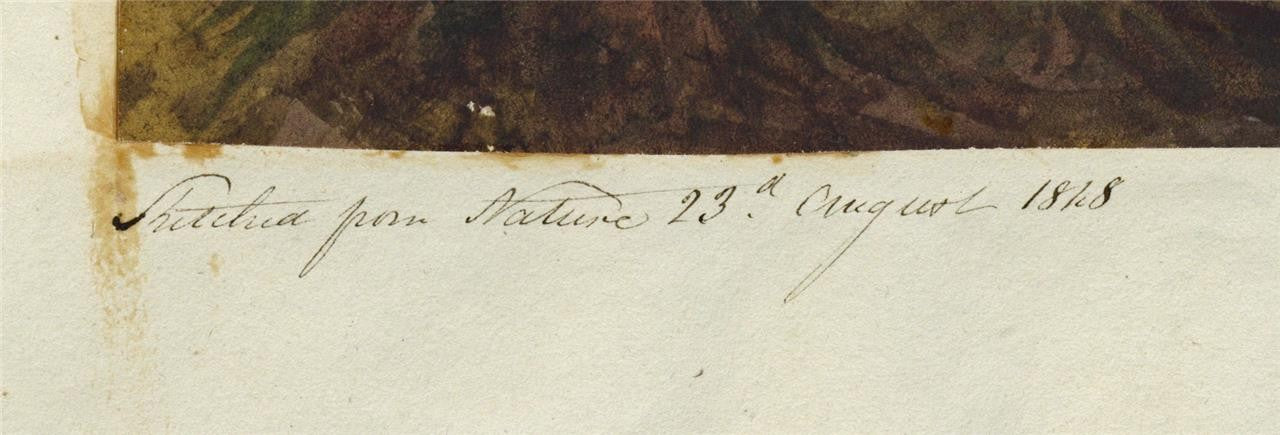 Sketched from Nature 23.d August 1848